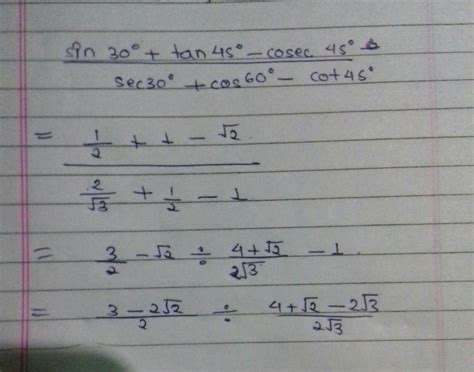 sin 30° + tan 45° - cosec 45°
sec 30° + cos 60° - cot 45°
= 1/2 + 1 - √2
2/√3 + 1/2 - 1
= 3/2 - √2 ÷ 4+√2/2√3 - 1.
= 3 - 2√2/2 ÷ 4 + √2 - 2√3/2√3